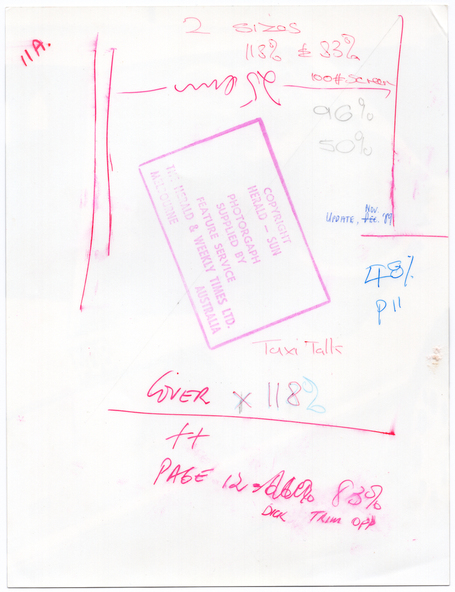 11A.
2 sizes
118% & 83%
100# Screen
96%
50%
COPYRIGHT
HERALD - SUN
PHOTORGAPH
SUPPLIED BY
FEATURE SERVICE
THE HERALD & WEEKLY TIMES LTD.
MELBOURNE AUSTRALIA
Nov.
UPDATE, Dec. '89
48%
p 11
Taxi Talk
COVER x 118%
++
PAGE 12 83%
TRIM OFF